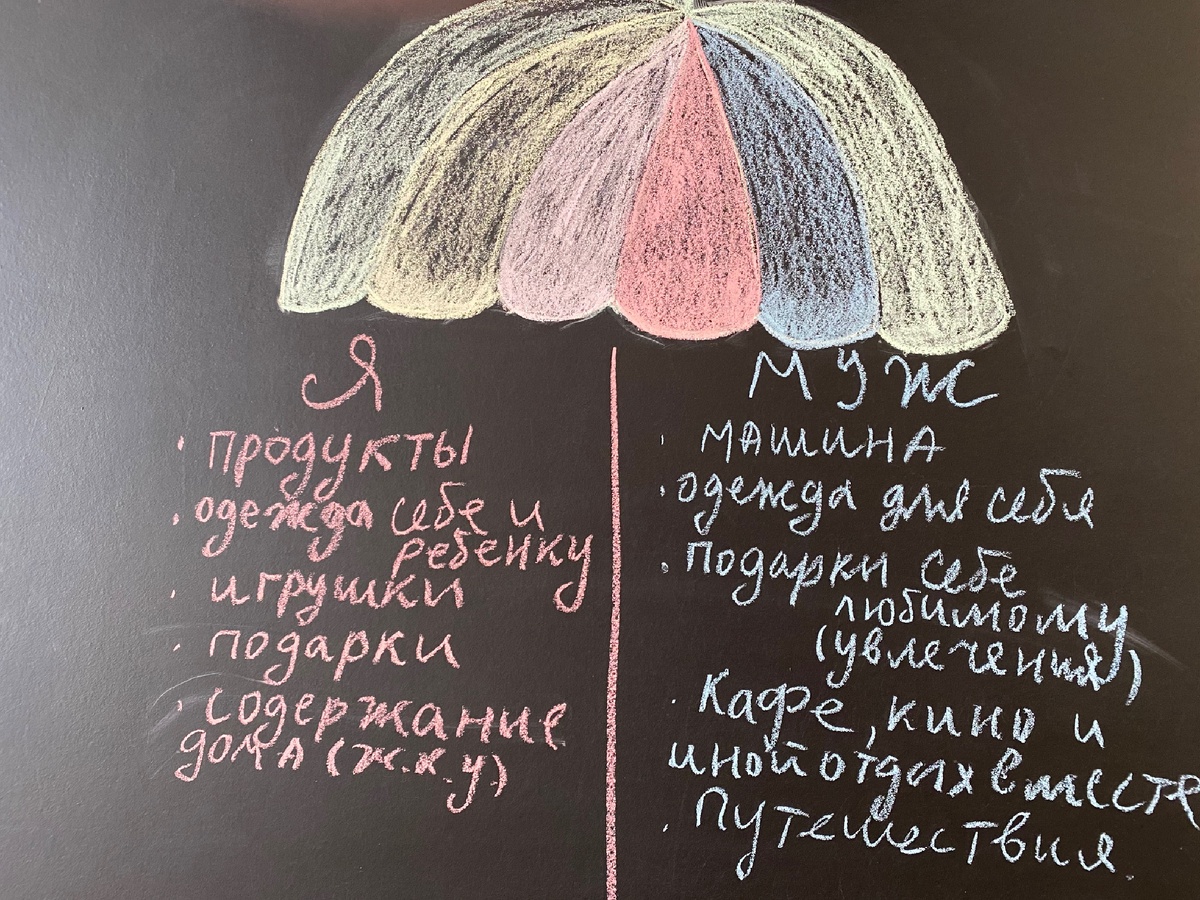 Я
· продукты
· одежда себе и
ребенку
· игрушки
· подарки
· содержание
дома (ж.к.у)
МУЖ
· МАШИНА
· одежда для себя
· Подарки себе
любимому
(увлечения)
· Кафе, кино и
иной отдых вместе
· Путешествия